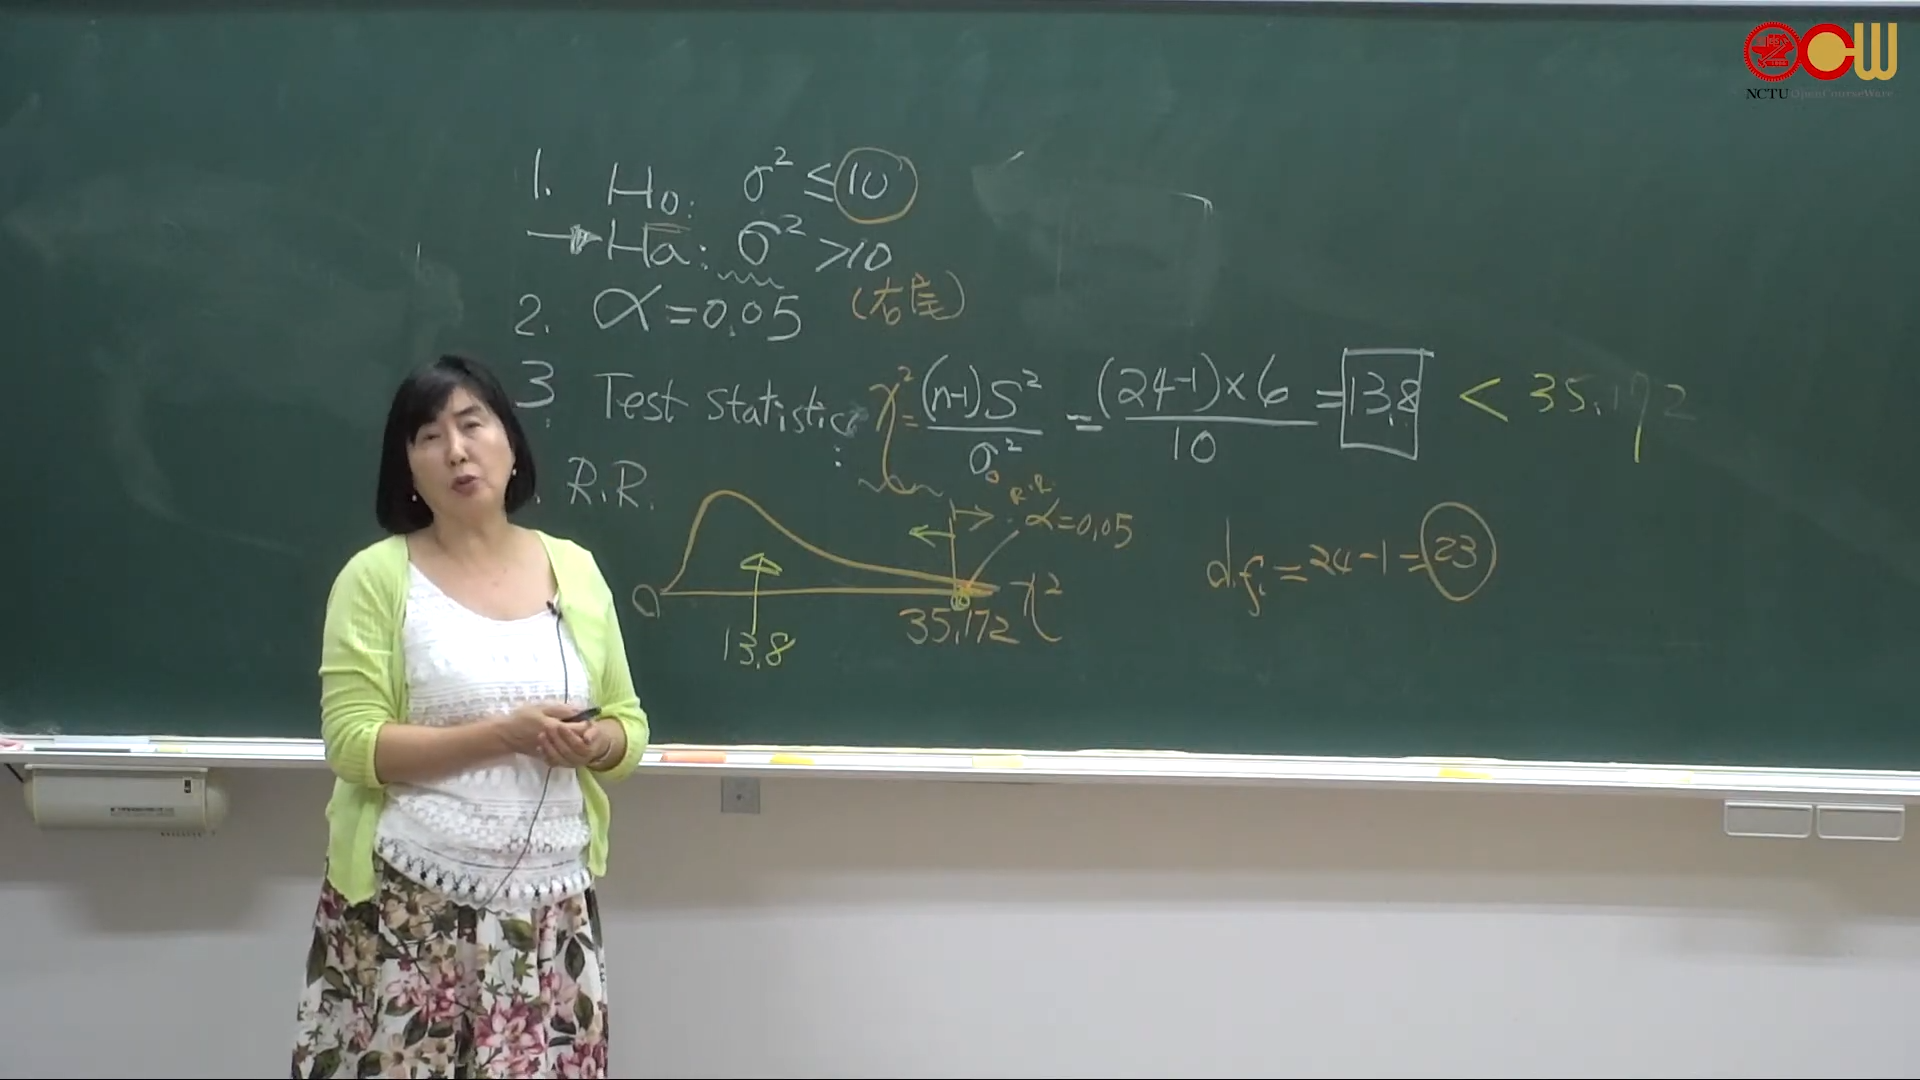 NCTU OpenCourseWare
1. H₀: σ² ≤ 10
→ Ha: σ² > 10
2. α = 0.05 (右尾)
3. Test Statistic: χ² = (n-1)S² / σ₀² = (24-1)×6 / 10 = 13.8 < 35.172
R.R.
R.R.
α = 0.05
d.f. = 24-1 = 23
0 13.8 35.172 χ²